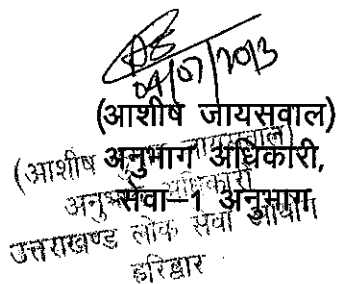 04/07/2013
(आशीष जायसवाल)
अनुभाग अधिकारी,
सेवा–1 अनुभाग
(आशीष जायसवाल)
अनुभाग अधिकारी
उत्तराखण्ड लोक सेवा आयोग
हरिद्वार